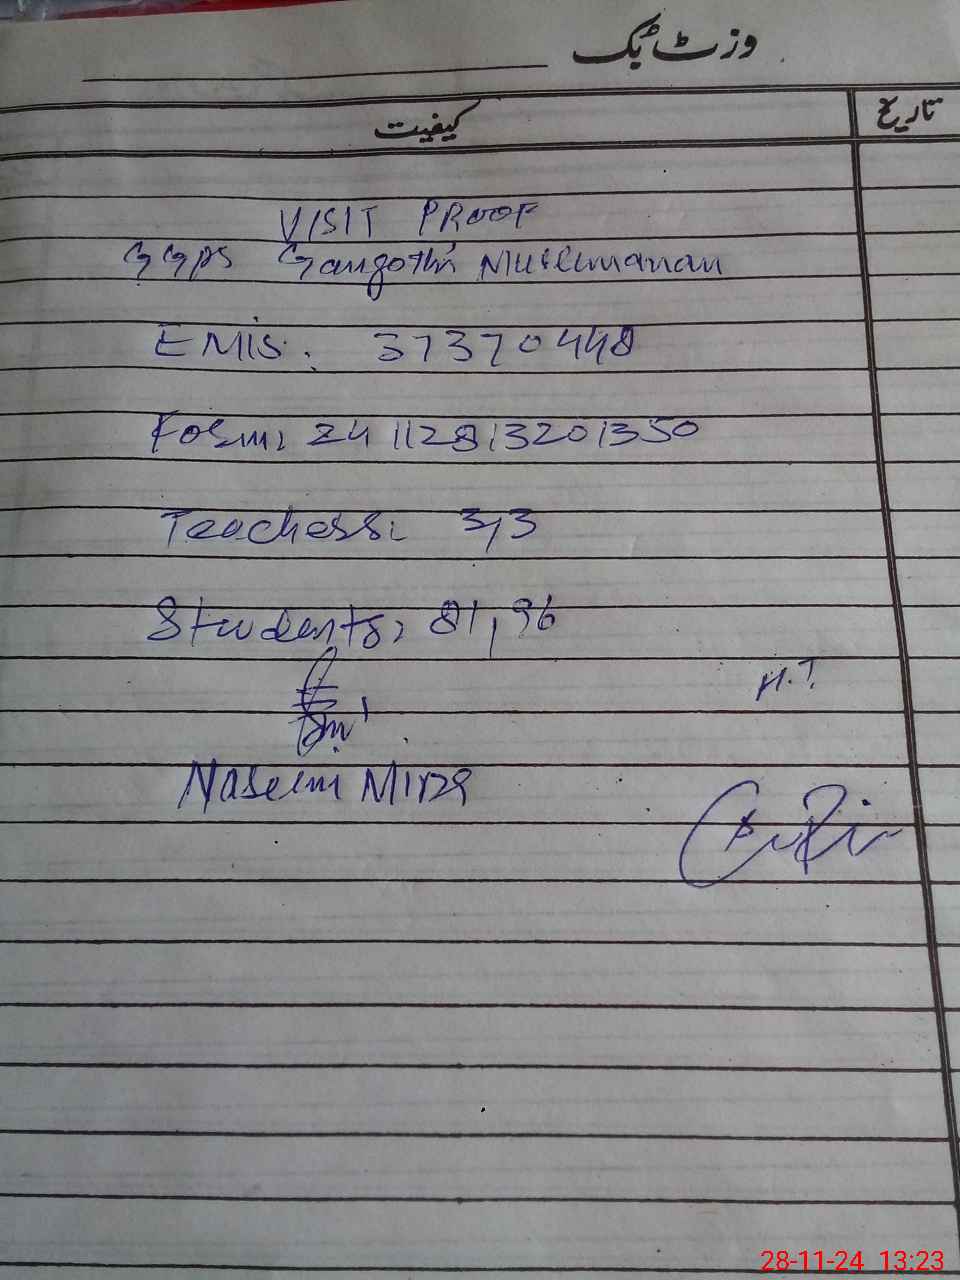 وزٹ بک
کیفیت
تاریخ
VISIT PROOF
GGPS Gangothi Musalmanan
EMIS. 37370448
Form: 24112813201350
Teachers: 3,3
Students, 81,96
H.T.
Naseem Mirza
28-11-24 13:23